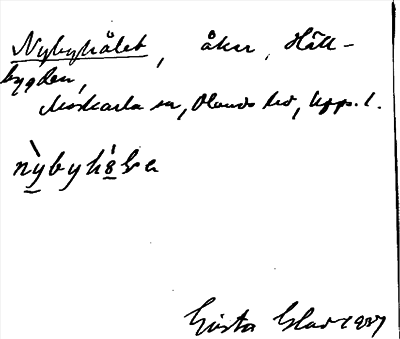 Nybyhålet, åker, Häll-
bygden,
Morkarla sn, Olands hd, Upps. l.
nỳbyhå̀lɛ
Gösta Glad 1937